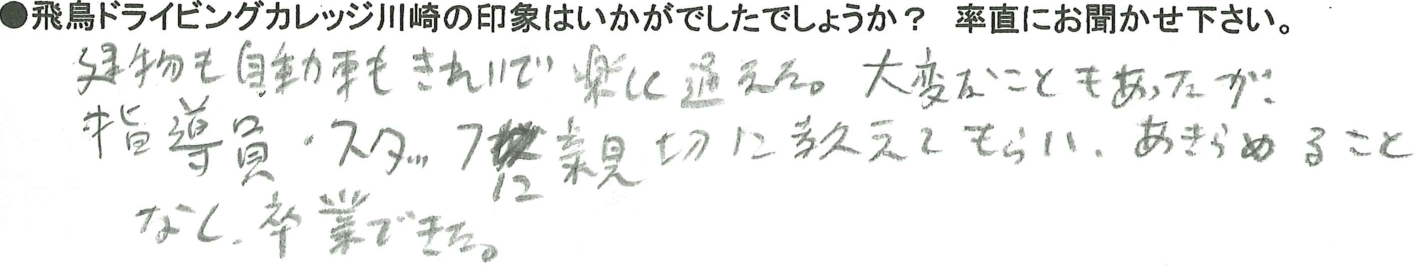 ●飛鳥ドライビングカレッジ川崎の印象はいかがでしたでしょうか？　率直にお聞かせ下さい。
建物も自動車もきれいで楽に通えた。大変なこともあったが、
指導員・スタッフに親切に教えてもらい、あきらめること
なく、卒業できた。